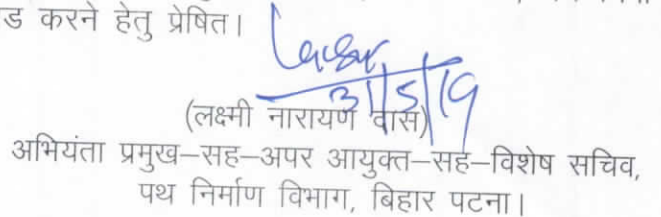 ड करने हेतु प्रेषित।
31/5/19
(लक्ष्मी नारायण दास)
अभियंता प्रमुख–सह–अपर आयुक्त–सह–विशेष सचिव,
पथ निर्माण विभाग, बिहार पटना।